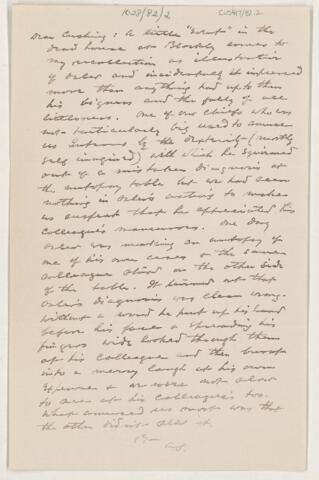 1028/82/2
CUS417/82.2
Dear Cushing: A little "event" in the
dead house at Blockley comes to
my recollection as illustrative
of Osler and incidentally it impressed
more than anything had up to then
his bigness and the folly of all
littleness. One of our chiefs who was
not particularly big used to amuse
us Interns by the dexterity (mostly
self imagined) with which he squirmed
out of a mistaken diagnosis at
the autopsy table but we had seen
nothing in Osler's actions to make
us suspect that he appreciated his
colleague's maneuvers. One Day
Osler was making an autopsy of
one of his own cases & the same
colleague stood on the other side
of the table. It turned out that
Osler's diagnosis was clean wrong.
Without a word he put up his hand
before his face & spreading his
fingers wide looked through them
at his colleague and then burst
into a merry laugh at his own
expense & we were not slow
to see at his colleague's too.
What amused us most was that
the other didn't see it.